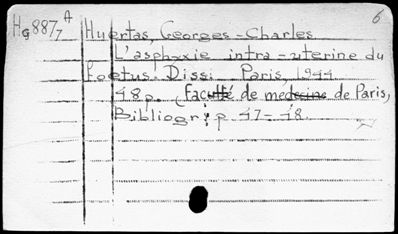 Hg887/7 A Huertas, Georges-Charles 6
L'asphyxie intra-uterine du
foetus. Diss. Paris, 1944
48 p. (Faculté de medecine de Paris,
Bibliogr: p 47-48.